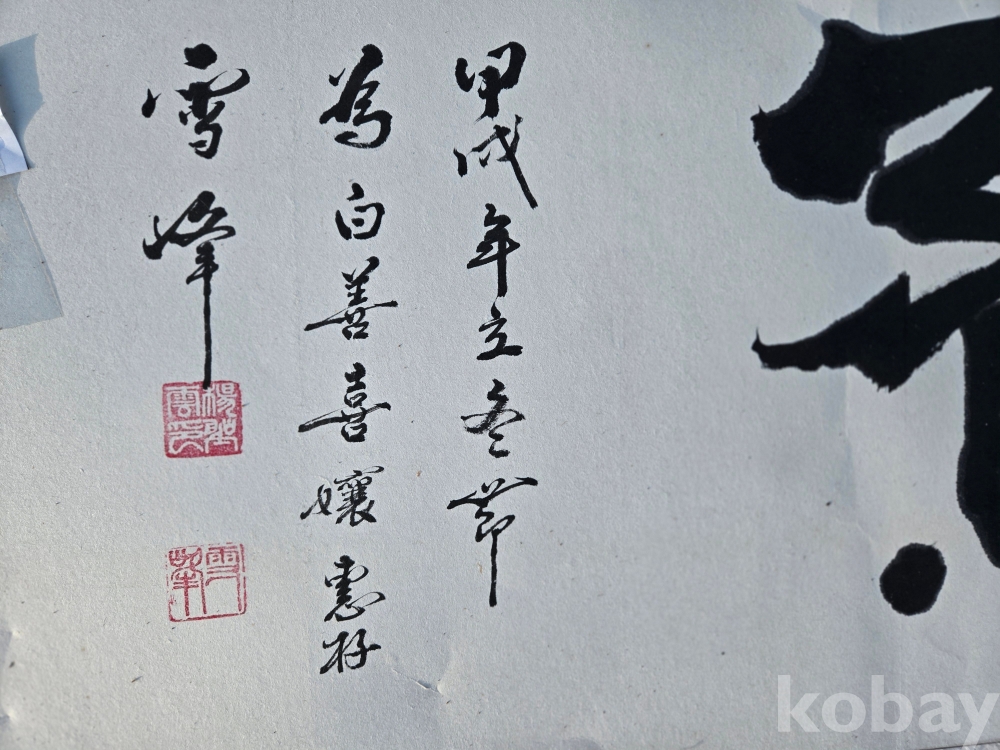 甲戌年立冬節
為白善喜孃惠存
雪峰
雪峯
kobay